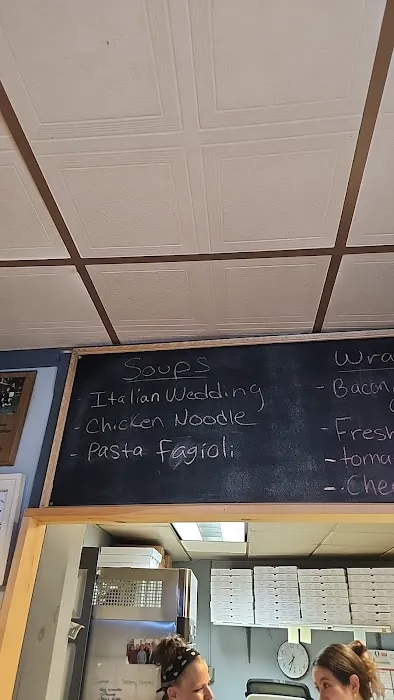 Soups
- Italian Wedding
- Chicken Noodle
- Pasta Fagioli
Wra
- Bacon
- Fresh
- toma
- Chee